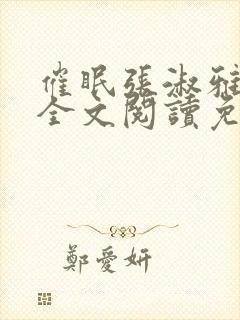 催眠張淑雅
全文閱讀免
鄭愛妍